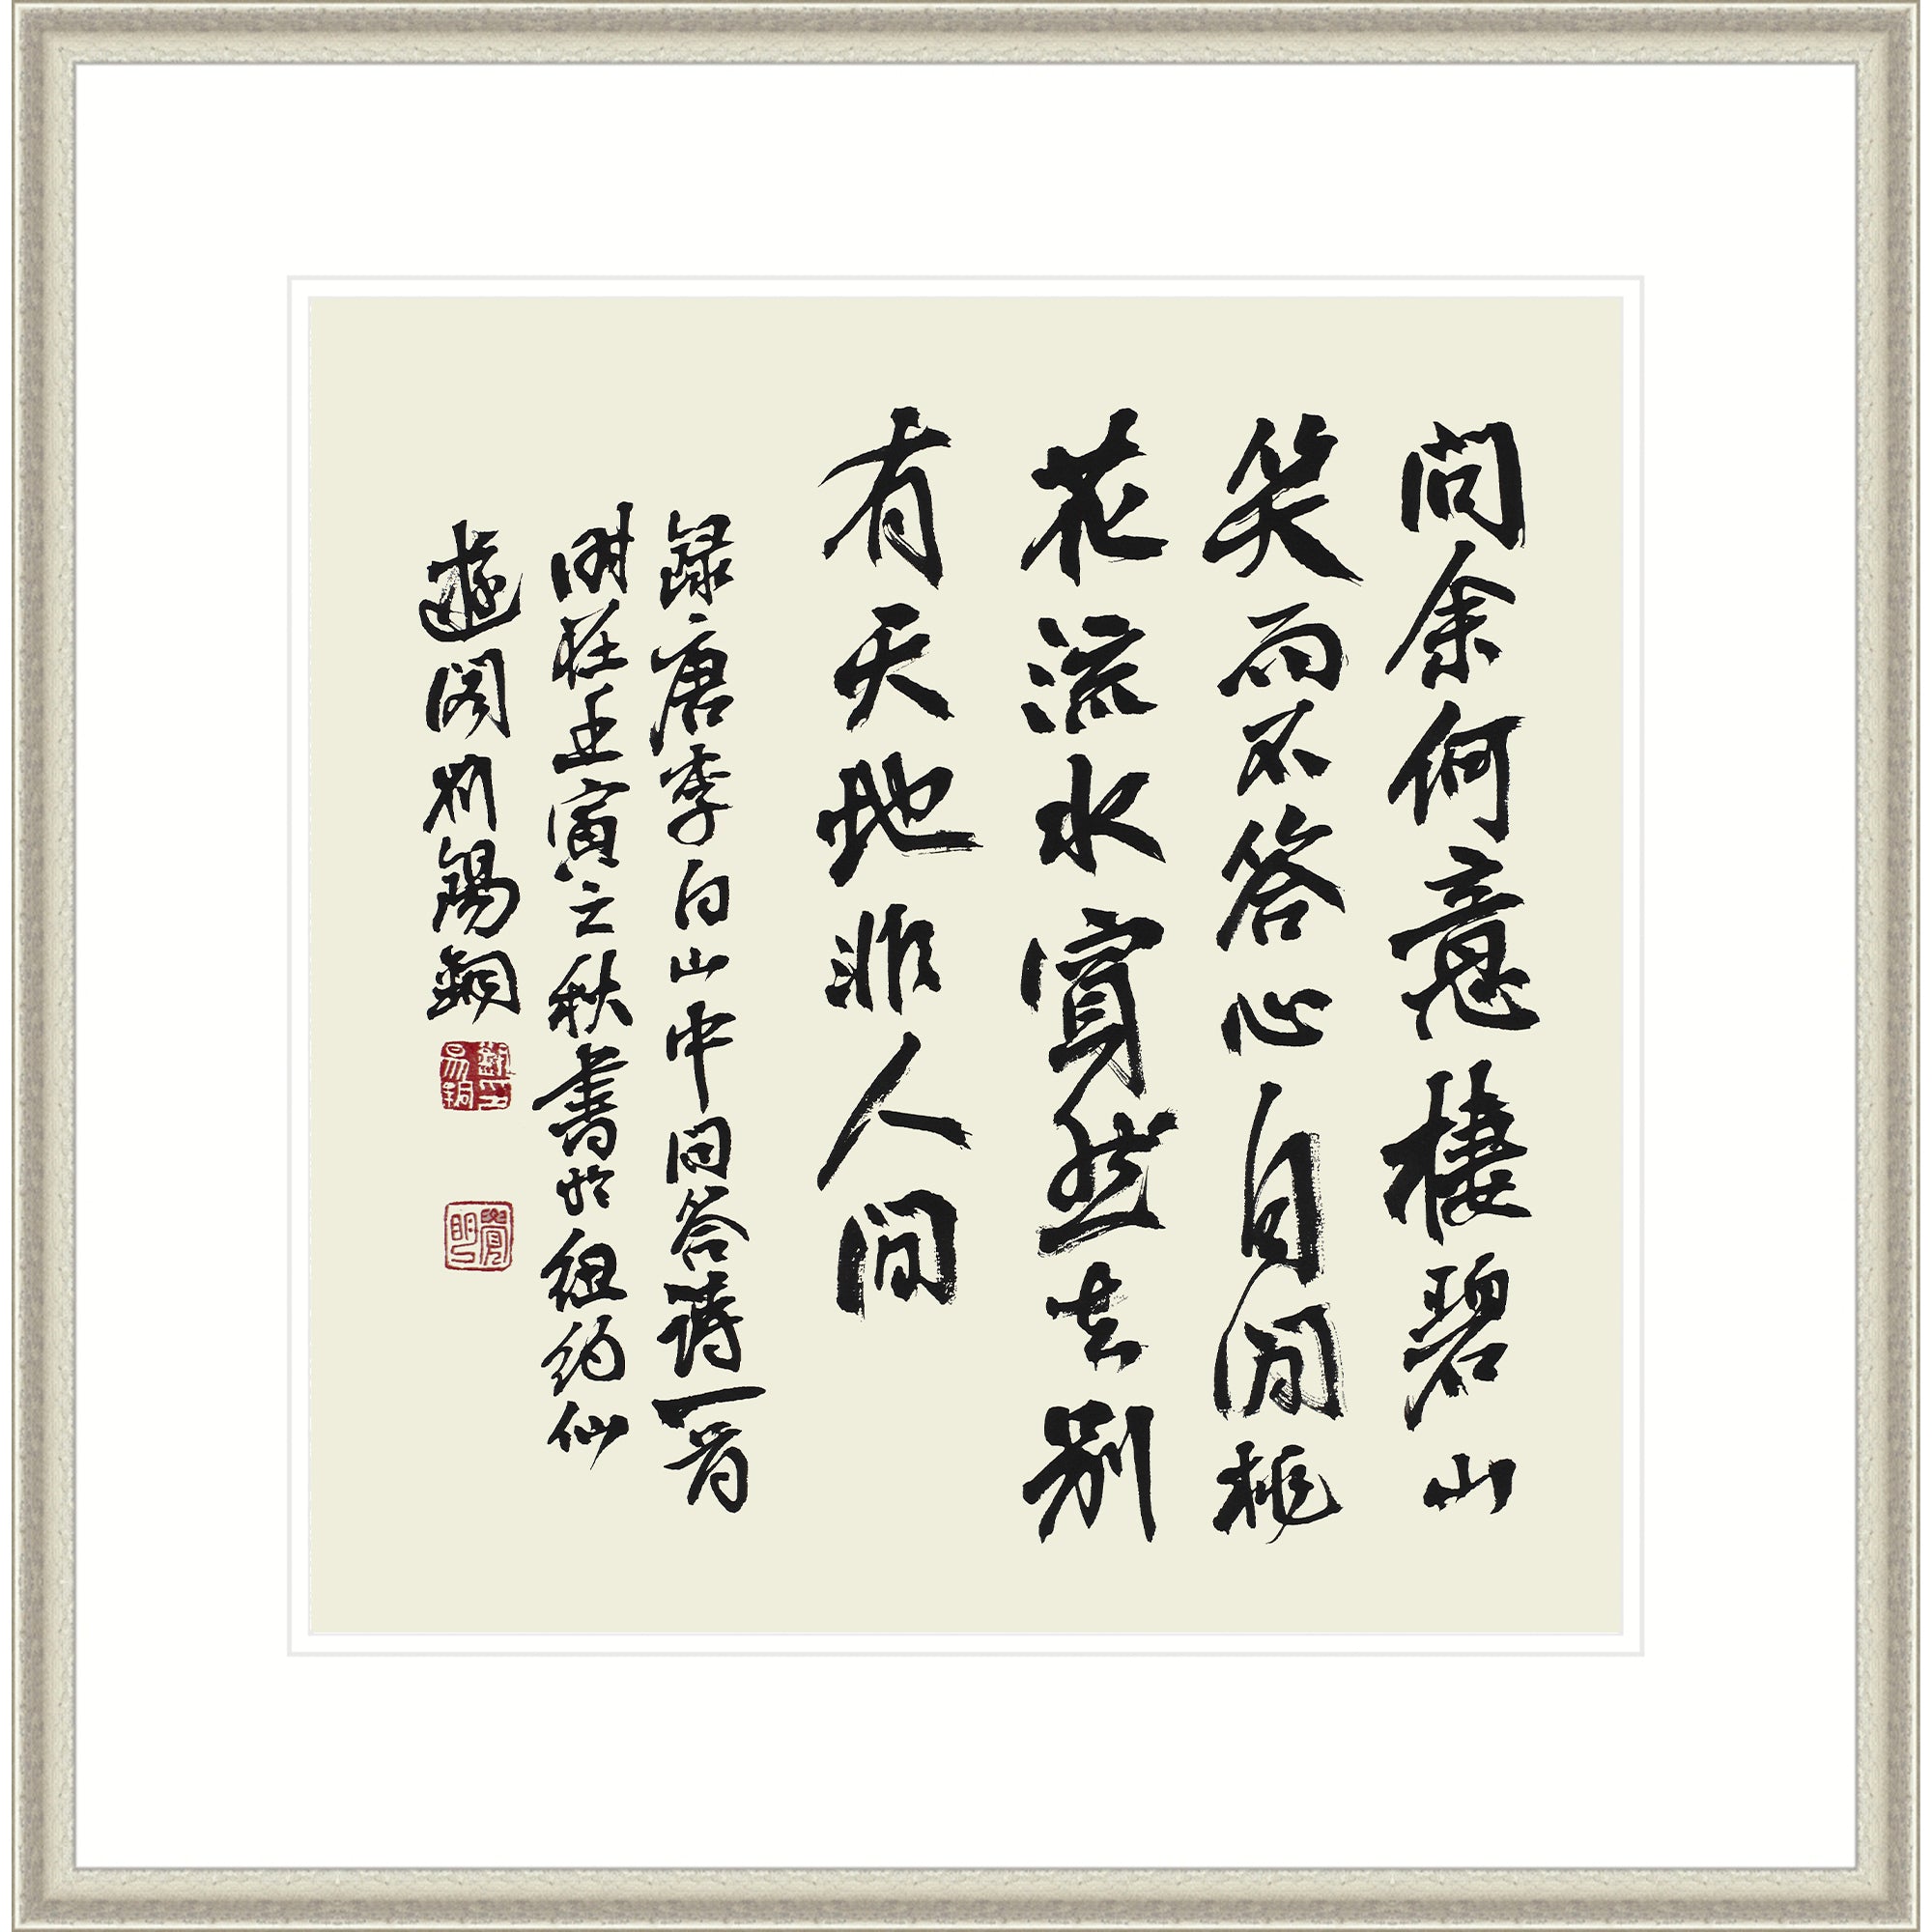 問余何意棲碧山
笑而不答心自閒桃
花流水窅然去別
有天地非人間
錄唐李白山中問答詩一首
時在壬寅之秋書於紐約仙
遊閣刘錫銅